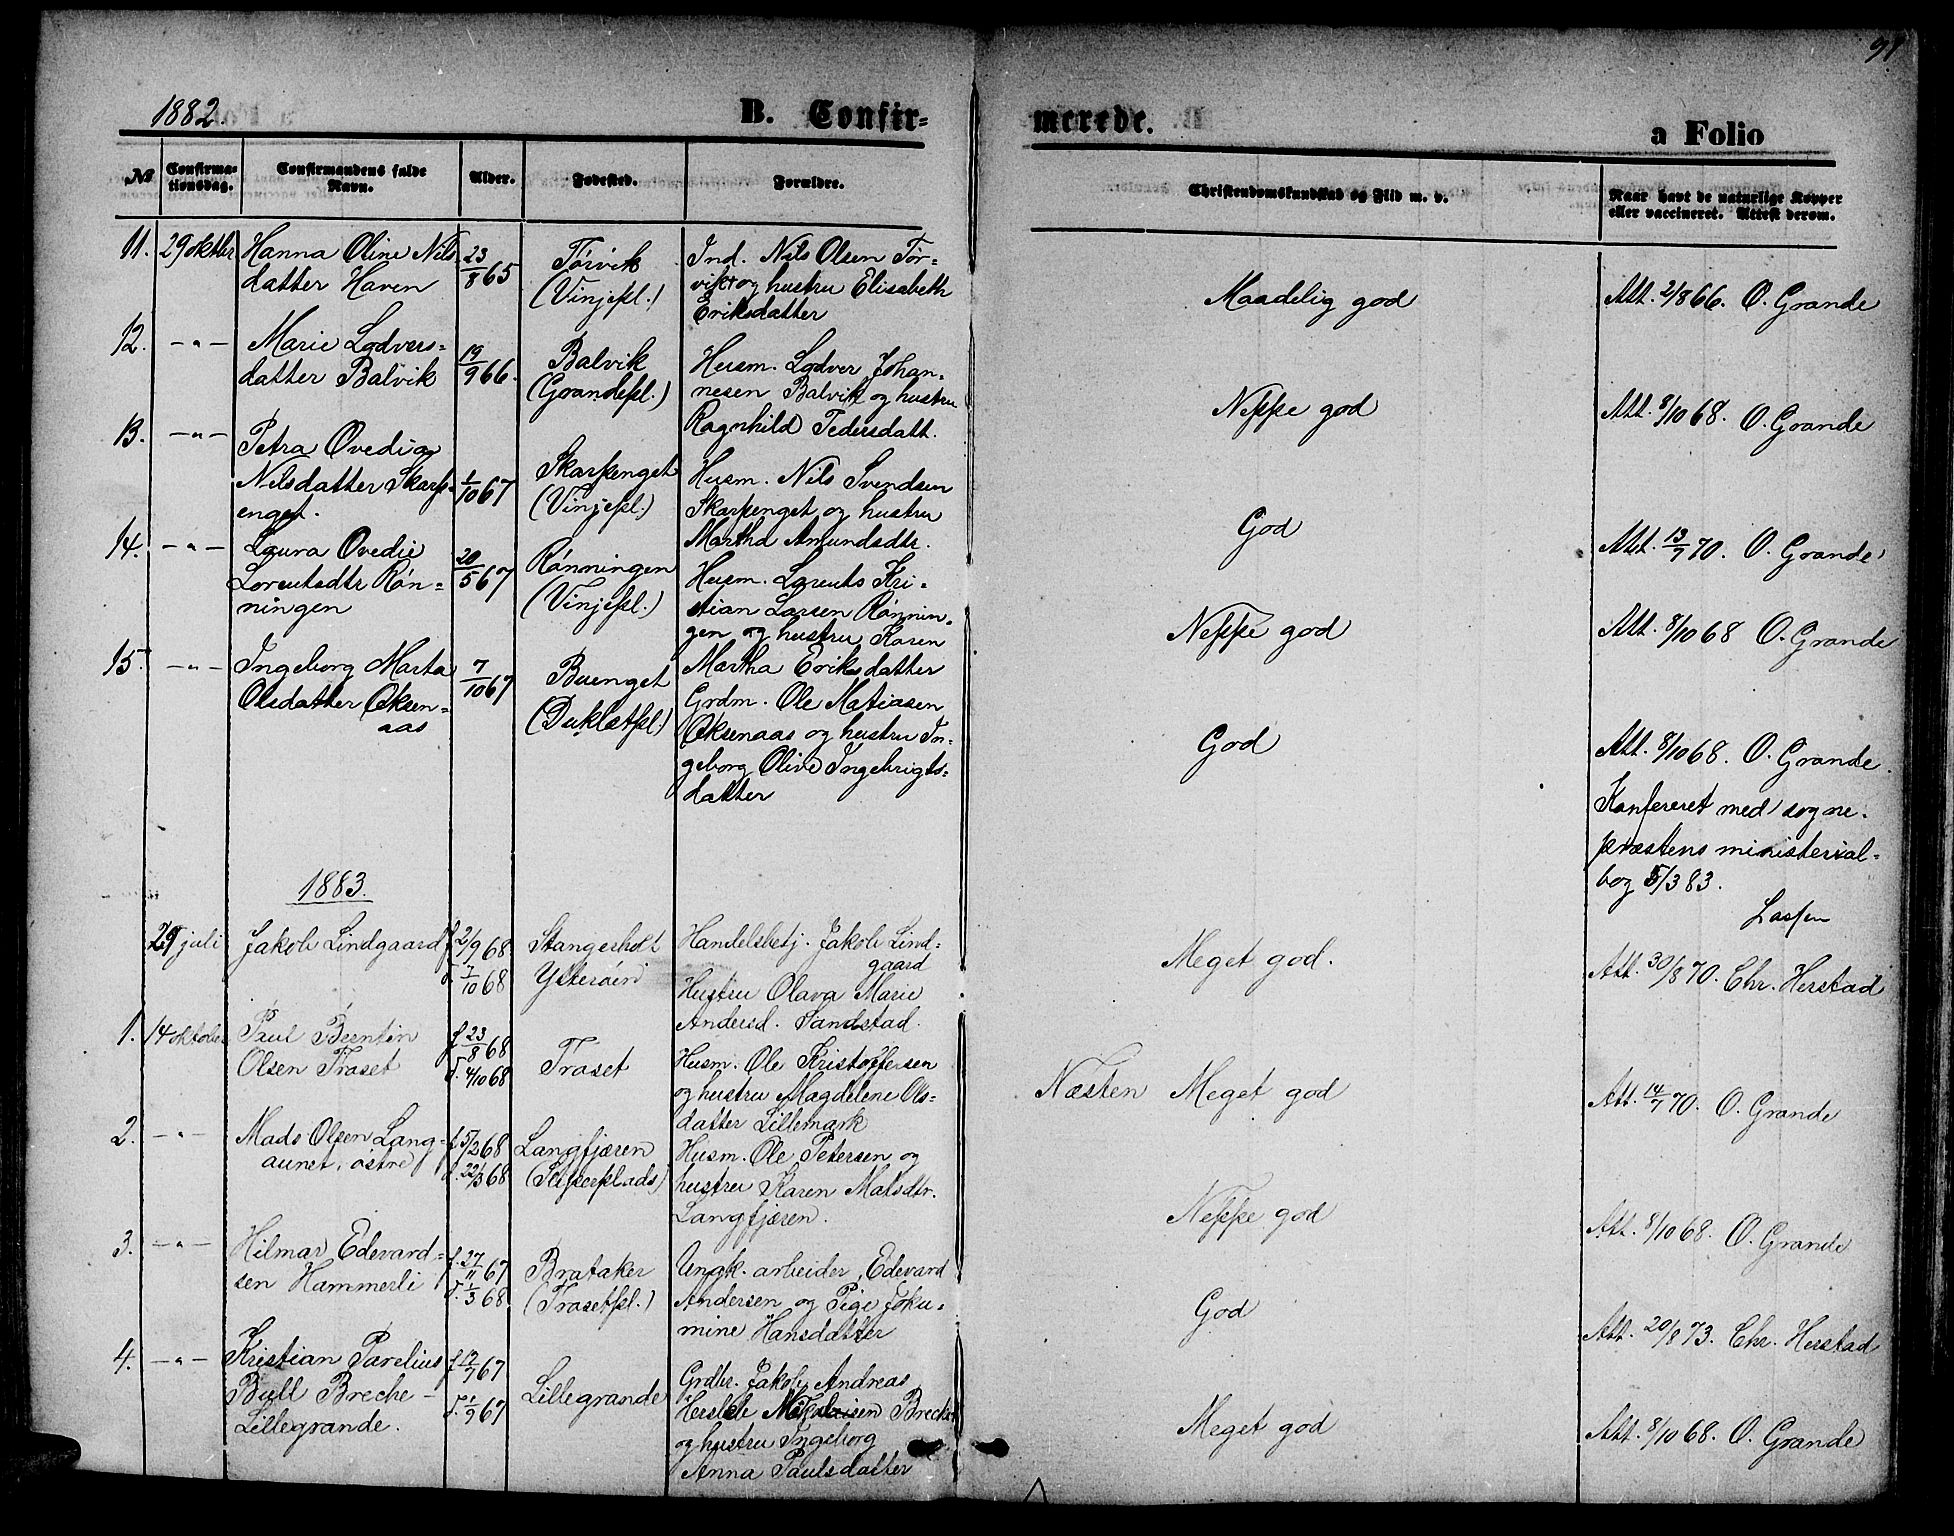 91
1882.
B. Confir=
merede.
a Folio
No
Confirma-
tionsdag.
Confirmandens fulde
Navn.
Alder.
Fødested.
Forældre.
Christendomskundskab og Flid m. v.
Naar havt de naturlige Kopper
eller vaccineret. Attest derom.
11.
29 oktbr
Hanna Oline Nils
datter Haven
23/8 65
Tørvik
(Vinjepl.)
Ind. Nils Olsen Tør-
vik og hustru Elisabeth
Eriksdatter
Maadelig god
Att. 2/8 66. O. Grande
12.
-"-
Marie Lodvers-
datter Balvik
19/9 66.
Balvik
(Grandepl.)
Husm. Lodver Johan-
nesen Balvik og hustru
Ragnhild Pedersdatt.
Neppe god
Att. 8/10 68. O. Grande
13.
-"-
Petra Ovedia
Nilsdatter Skarp-
enget.
1/10 67
Skarpenget
(Vinjepl.)
Husm. Nils Svendsen
Skarpenget og hustru
Martha Amundsdtr.
God
Att. 13/7 70. O. Grande
14.
-"-
Laura Ovedie
Lorentsdtr Røn=
ningen
20/5 67
Rønningen
(Vinjepl.)
Husm. Lorents Kri-
stian Larsen Rønnin-
gen og hustru Karen
Martha Eriksdatter
Neppe god
Att. 8/10 68 O. Grande
15.
-"-
Ingeborg Marta
Olsdatter Øksen=
aas
7/10 67
Buenget
(Dukletpl.)
Grdm. Ole Matiasen
Øksenaas og hustru In-
geborg Olive Ingebrigts-
datter
God
Att. 8/10 68. O. Grande.
Konfereret med sogne-
præstens ministerial-
bog 5/3 83.
Lassen
1883.
29 juli
Jakob Lindgaard
f. 2/9 68
d. 7/10 68
Stangerholt
Ytterøen
Handelsbetj. Jakob Lind=
gaard
Hustru Olava Marie
Andersd. Sandstad.
Meget god.
Att. 30/8 70. Chr. Herstad
1.
14 oktober
Paul Berntin
Olsen Traset
f. 23/8 68
d. 4/10 68
Traset
Husm. Ole Kristoffersen
og hustru Magdelene Ols=
datter Lillemark
Næsten Meget god
Att. 14/7 70. O. Grande
2.
-"-
Mads Olsen Lang-
aunet, østre
f. 5/2 68
d. 22/3 68
Langfjæren
Husm. Ole Petersen og
hustru Karen Matsdtr.
Langfjæren.
Neppe god
Att. 8/10 68. O. Grande
3.
-"-
Hilmar Edevard=
sen Hammerli
f. 27/11 67
d. 1/3 68
Brataker
(Trasetpl.)
Ungk. arbeider, Edevard
Andersen og Pige Joku-
mine Hansdatter
God
Att. 20/8 73. Chr. Herstad
4.
-"-
Kristian Parelius
Bull Breche-
Lillegrande.
f. 17/7 67
d. 1/9 67
Lillegrande
Grdbr. Jakob Andreas
Breche
og hustru Ingeborg
Anna Paulsdatter
Meget god
Att. 8/10 68. O. Grande